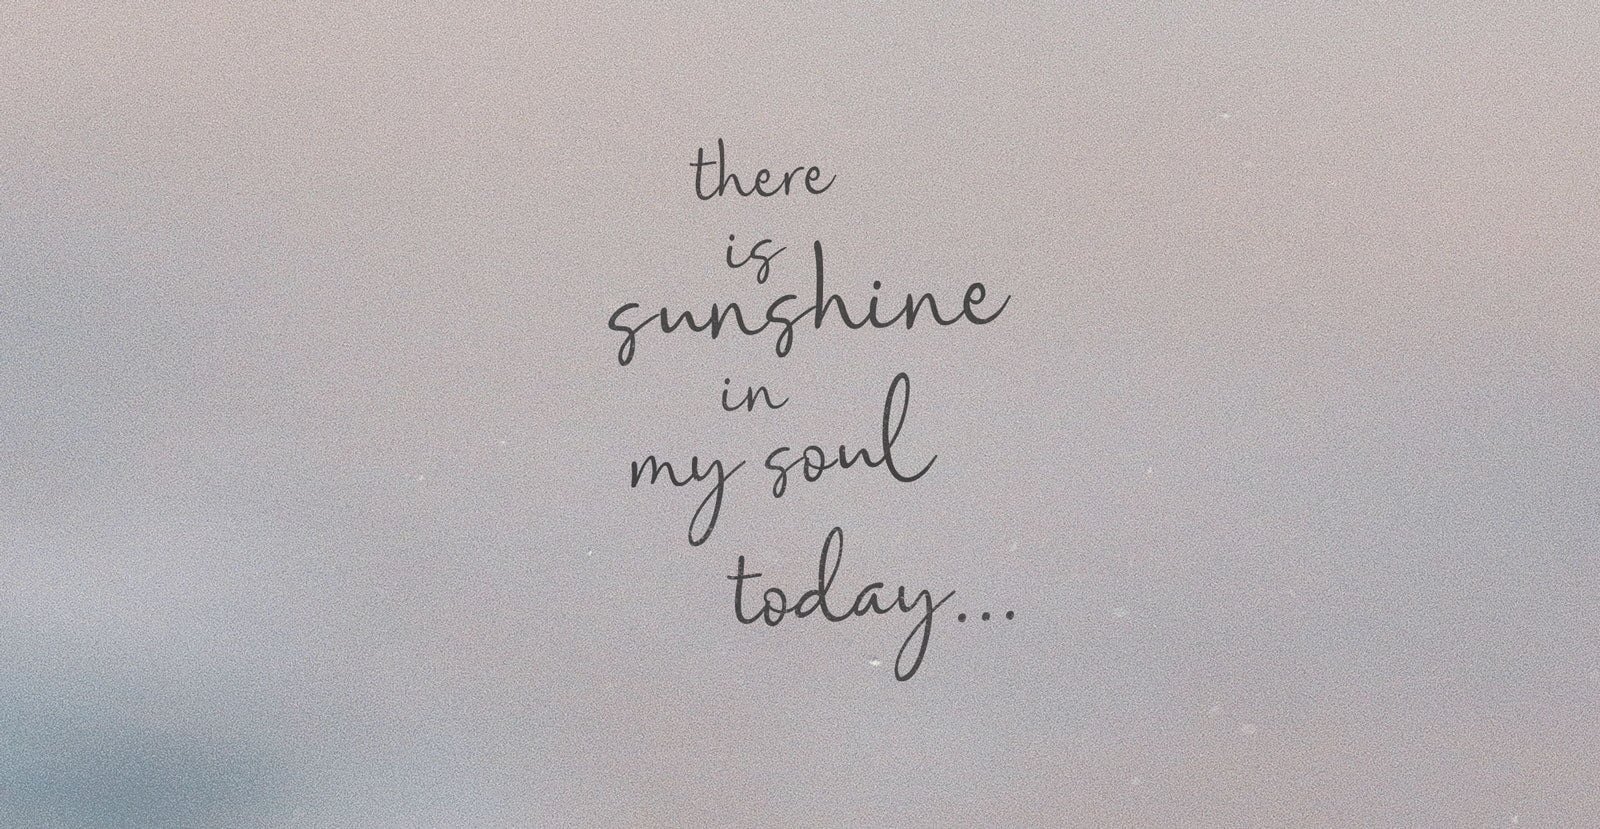 there
is
sunshine
in
my soul
today...